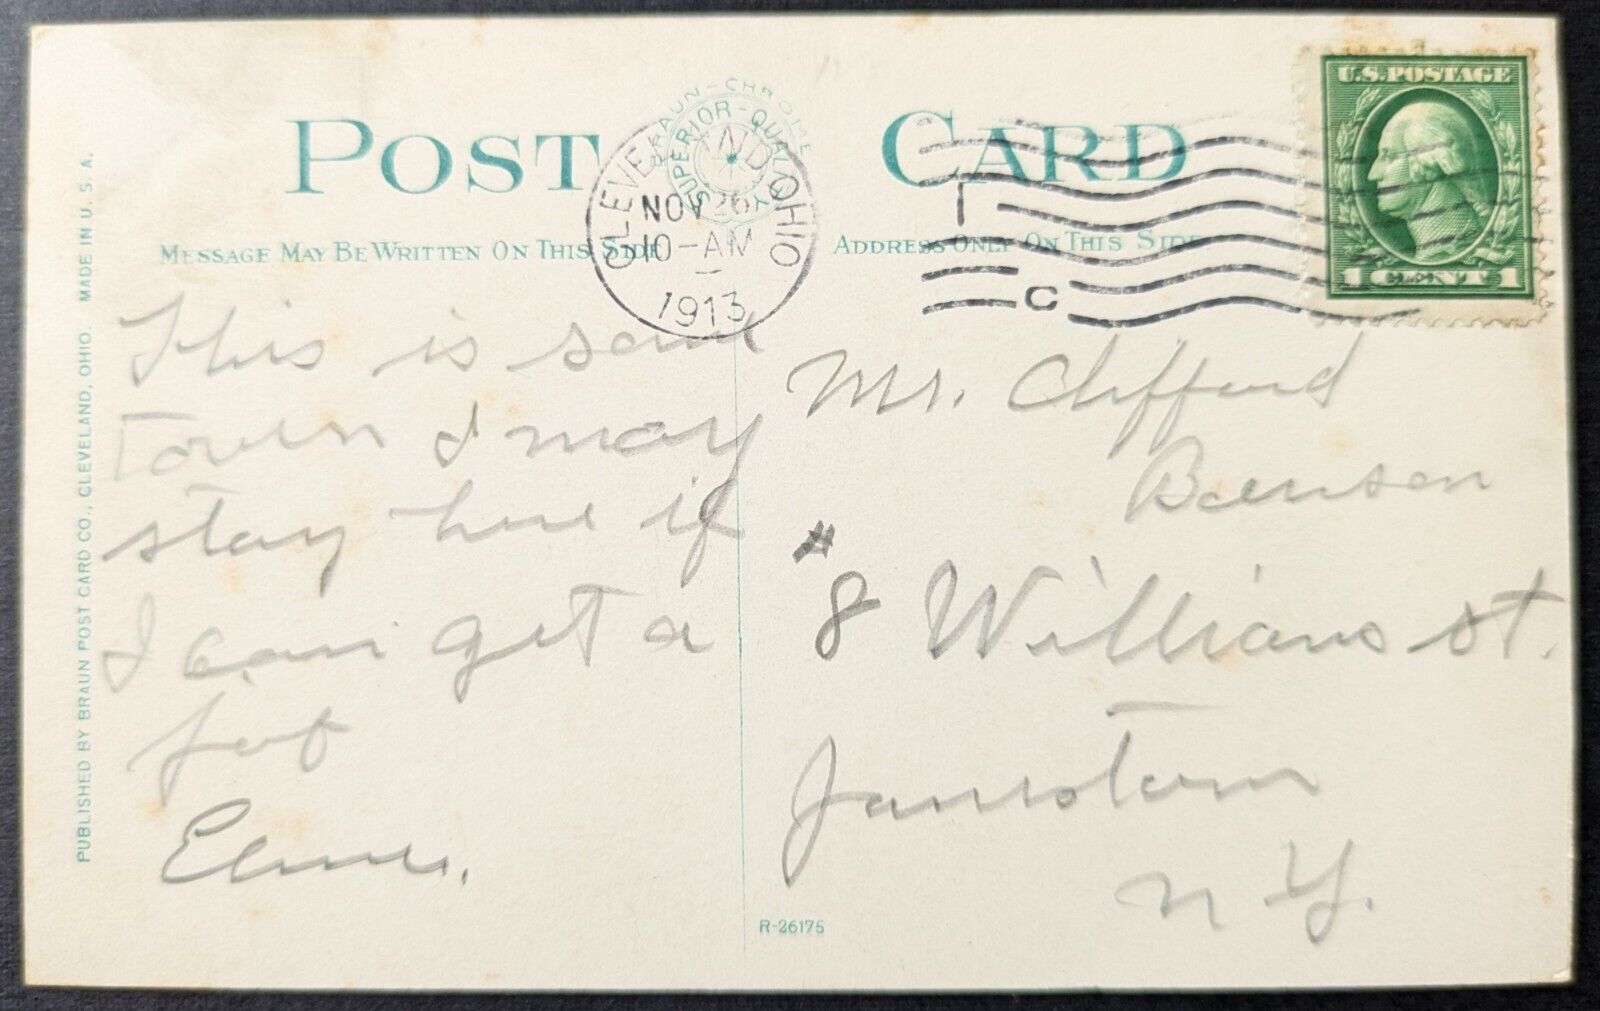 POST CARD
BRAUN-CHROME
SUPERIOR-QUALITY
CLEVELAND, OHIO
NOV 26
10-AM
1913
C
U.S. POSTAGE
1 CENT 1
MESSAGE MAY BE WRITTEN ON THIS SIDE
ADDRESS ONLY ON THIS SIDE
PUBLISHED BY BRAUN POST CARD CO., CLEVELAND, OHIO. MADE IN U.S.A.
This is some
town I may
stay here if
I can get a
job
Elmer.
Mr. Clifford
Benson
# 8 Williams st.
Jamestown
N Y.
R-26175